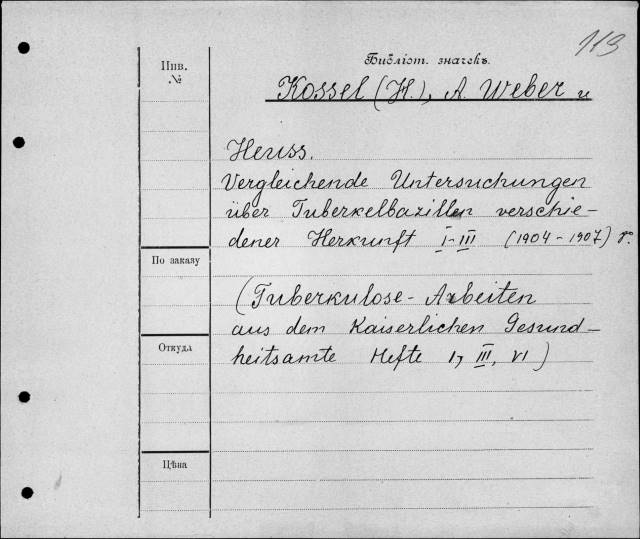 113
Инв.
№
Библіот. значекъ.
Kossel (H.), A. Weber и
Heuss.
Vergleichende Untersuchungen
über Tuberkelbazillen verschie-
dener Herkunft I-III (1904-1907) г.
По заказу
(Tuberkulose-Arbeiten
aus dem Kaiserlichen Gesund-
Откуда
heitsamte Hefte I, III, VI)
Цѣна